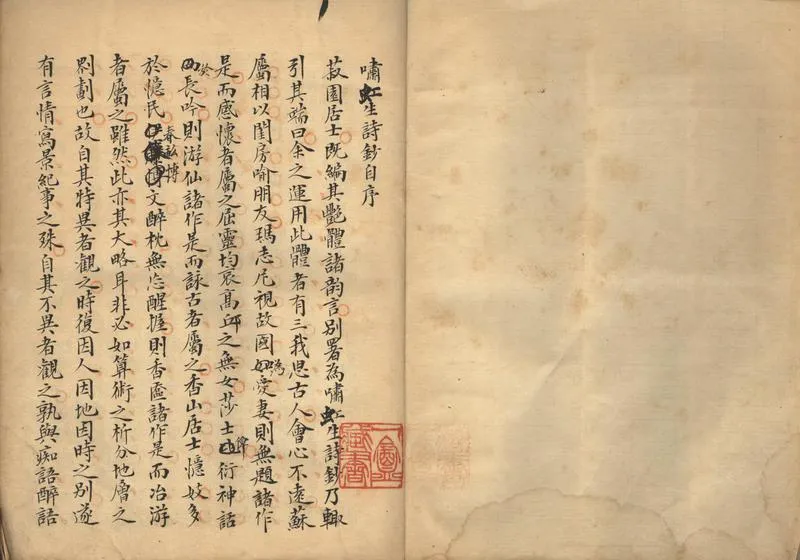 嘯虹生詩鈔自序
菽園居士既編其艷體諸韵言別署為嘯虹生詩鈔乃輒
引其端曰余之運用此體者有三我思古人會心不遠蘇
屬相以閨房喻朋友瑪志尼視故國為愛妻則無題諸作
是而感懷者屬之屈靈均哀高丘之無女莎士衍神話
於長吟則游仙諸作是而詠古者屬之香山居士憶妓多
於憶民春畝博文醉枕無忘醒握則香奩諸作是而冶游
者屬之雖然此亦其大略耳非必如算術之析分地層之
劃也故自其特異者觀之時復因人因地因時之別遂
有言情寫景紀事之殊自其不異者觀之孰與痴語醉語